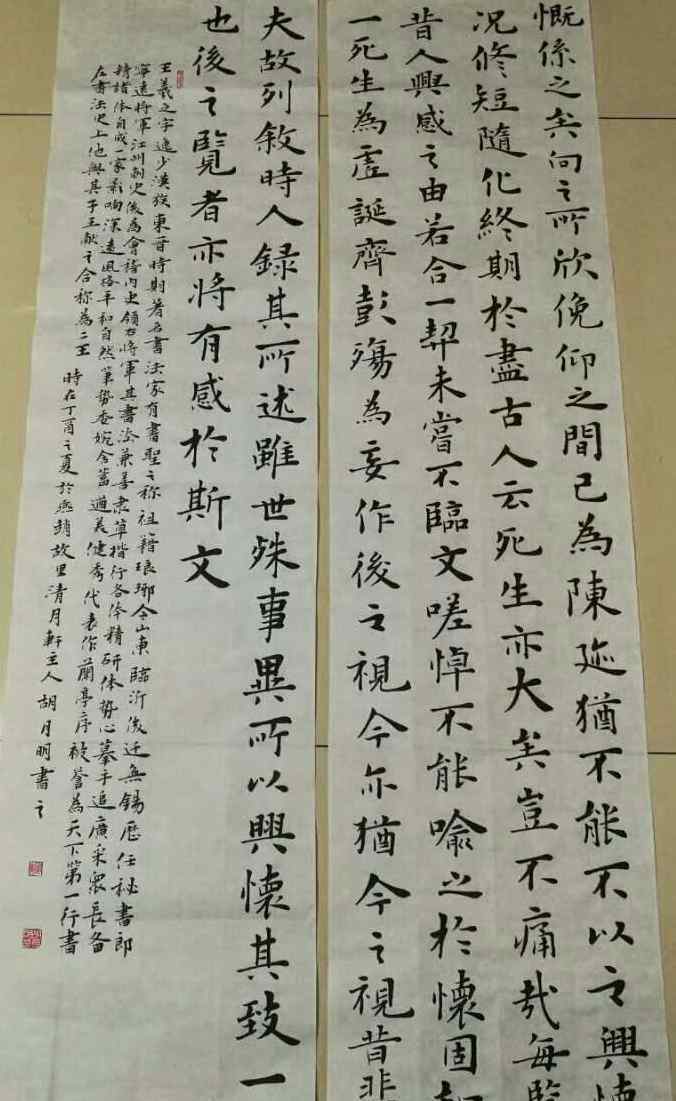 慨係之矣向之所欣俛仰之間已為陳迹猶不能不以之興懷
况修短隨化終期於盡古人云死生亦大矣豈不痛哉每覽
昔人興感之由若合一契未嘗不臨文嗟悼不能喻之於懷固知
一死生為虛誕齊彭殤為妄作後之視今亦猶今之視昔悲
夫故列敘時人録其所述雖世殊事異所以興懷其致一
也後之覽者亦將有感於斯文
王羲之字逸少漢族東晉時期著名書法家有書聖之称祖籍琅琊今山東臨沂後迁無錫歷任秘書郎
寧遠將軍江州刺史後為會稽內史領右將軍其書法兼善隶草楷行各体精研体勢心摹手追廣采眾長备
精諸体自成一家影响深遠風格平和自然筆勢委婉含蓄遒美健秀代表作蘭亭序被誉為天下第一行書
在書法史上他與其子王献之合称為二王 時在丁酉之夏於燕趙故里清月軒主人胡月明書之